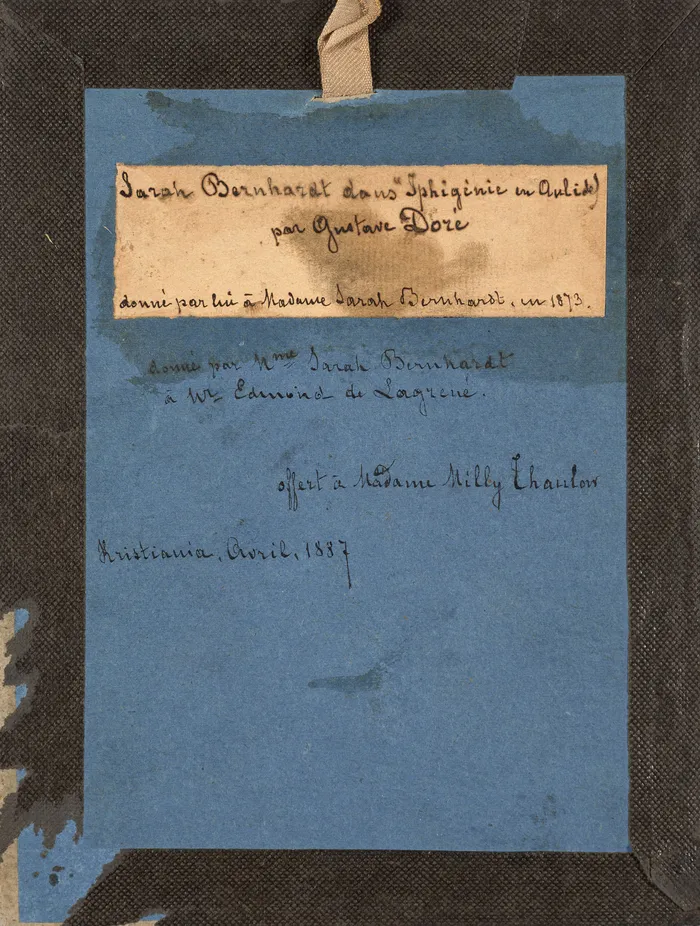 Sarah Bernhardt dans "Iphigénie en Aulide)
par Gustave Doré
donné par lui à Madame Sarah Bernhardt, en 1873.
donné par Mme Sarah Bernhardt
à Mr Edmond de Lagrené.
offert à Madame Milly Thaulow
Kristiania, Avril, 1887